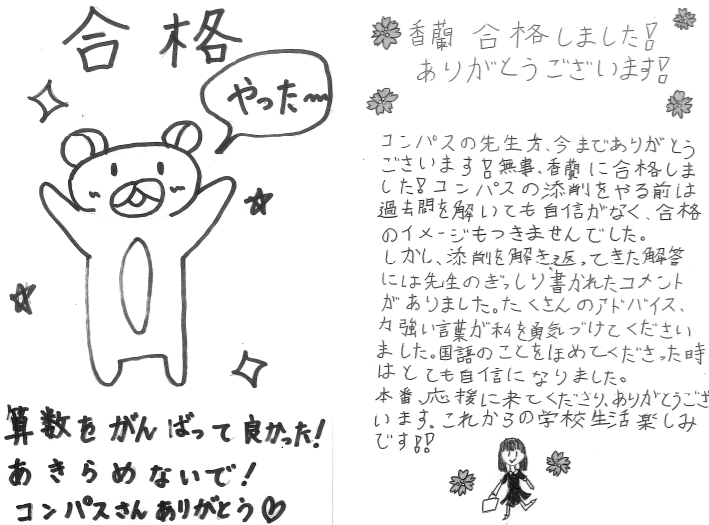 合格
やった〜
算数をがんばって良かった!
あきらめないで!
コンパスさんありがとう♡
香蘭 合格しました!
ありがとうございます!
コンパスの先生方、今までありがとう
ございます!無事、香蘭に合格しま
した!コンパスの添削をやる前は
過去問を解いても自信がなく、合格
のイメージもつきませんでした。
しかし、添削を解き返ってきた解答
には先生のぎっしり書かれたコメント
がありました。たくさんのアドバイス、
力強い言葉が私を勇気づけてください
ました。国語のことをほめてくださった時
はとても自信になりました。
本番、応援に来てくださり、ありがとうござ
います。これからの学校生活楽しみ
です!!